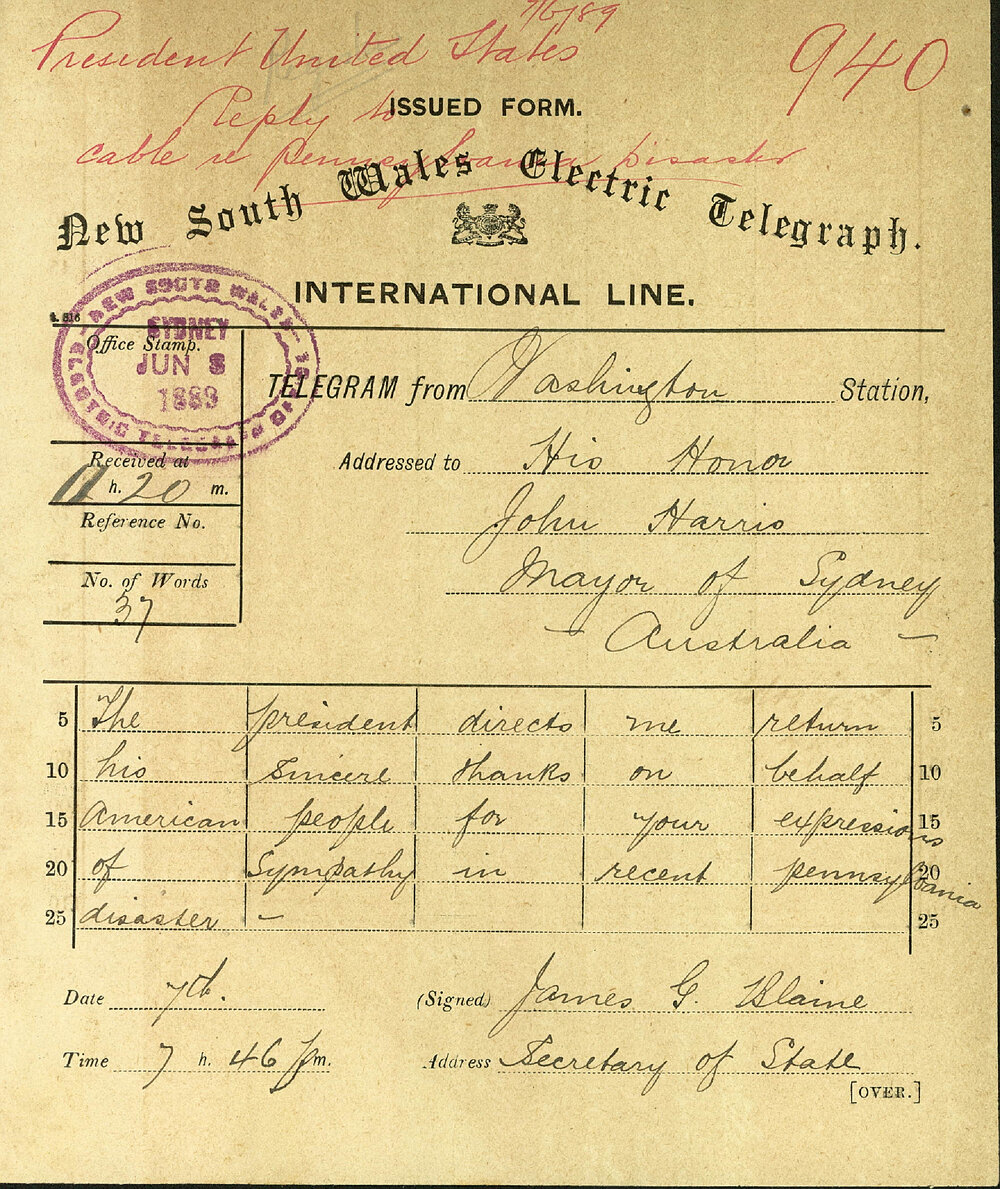 7/6/89
President United States
940
Reply to
ISSUED FORM.
cable re Pennsylvania disaster
New South Wales Electric Telegraph.
INTERNATIONAL LINE.
NEW SOUTH WALES
ELECTRIC TELEGRAPH
SYDNEY
JUN 8
1889
Office Stamp.
TELEGRAM from Washington Station,
Received at
11 h. 20 m.
Addressed to His Honor
Reference No.
John Harris
No. of Words
37
Mayor of Sydney
- Australia -
5 The president directs me return 5
10 his sincere thanks on behalf 10
15 American people for your expressions 15
20 of Sympathy in recent pennsylvania 20
25 disaster - 25
Date 7th. (Signed) James G. Blaine
Time 7 h. 46 pm. Address Secretary of State
[OVER.]